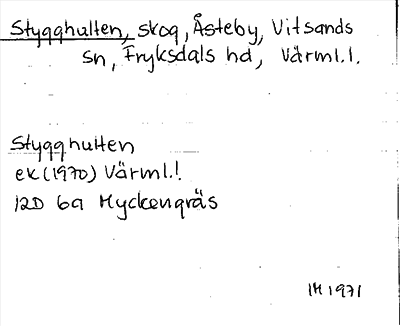 Stygghulten, skog, Åsteby, Vitsands
sn, Fryksdals hd, Värml.l.
Stygghulten
ek (1970) Värml.l.
12D 6a Myckengräs
IH 1971